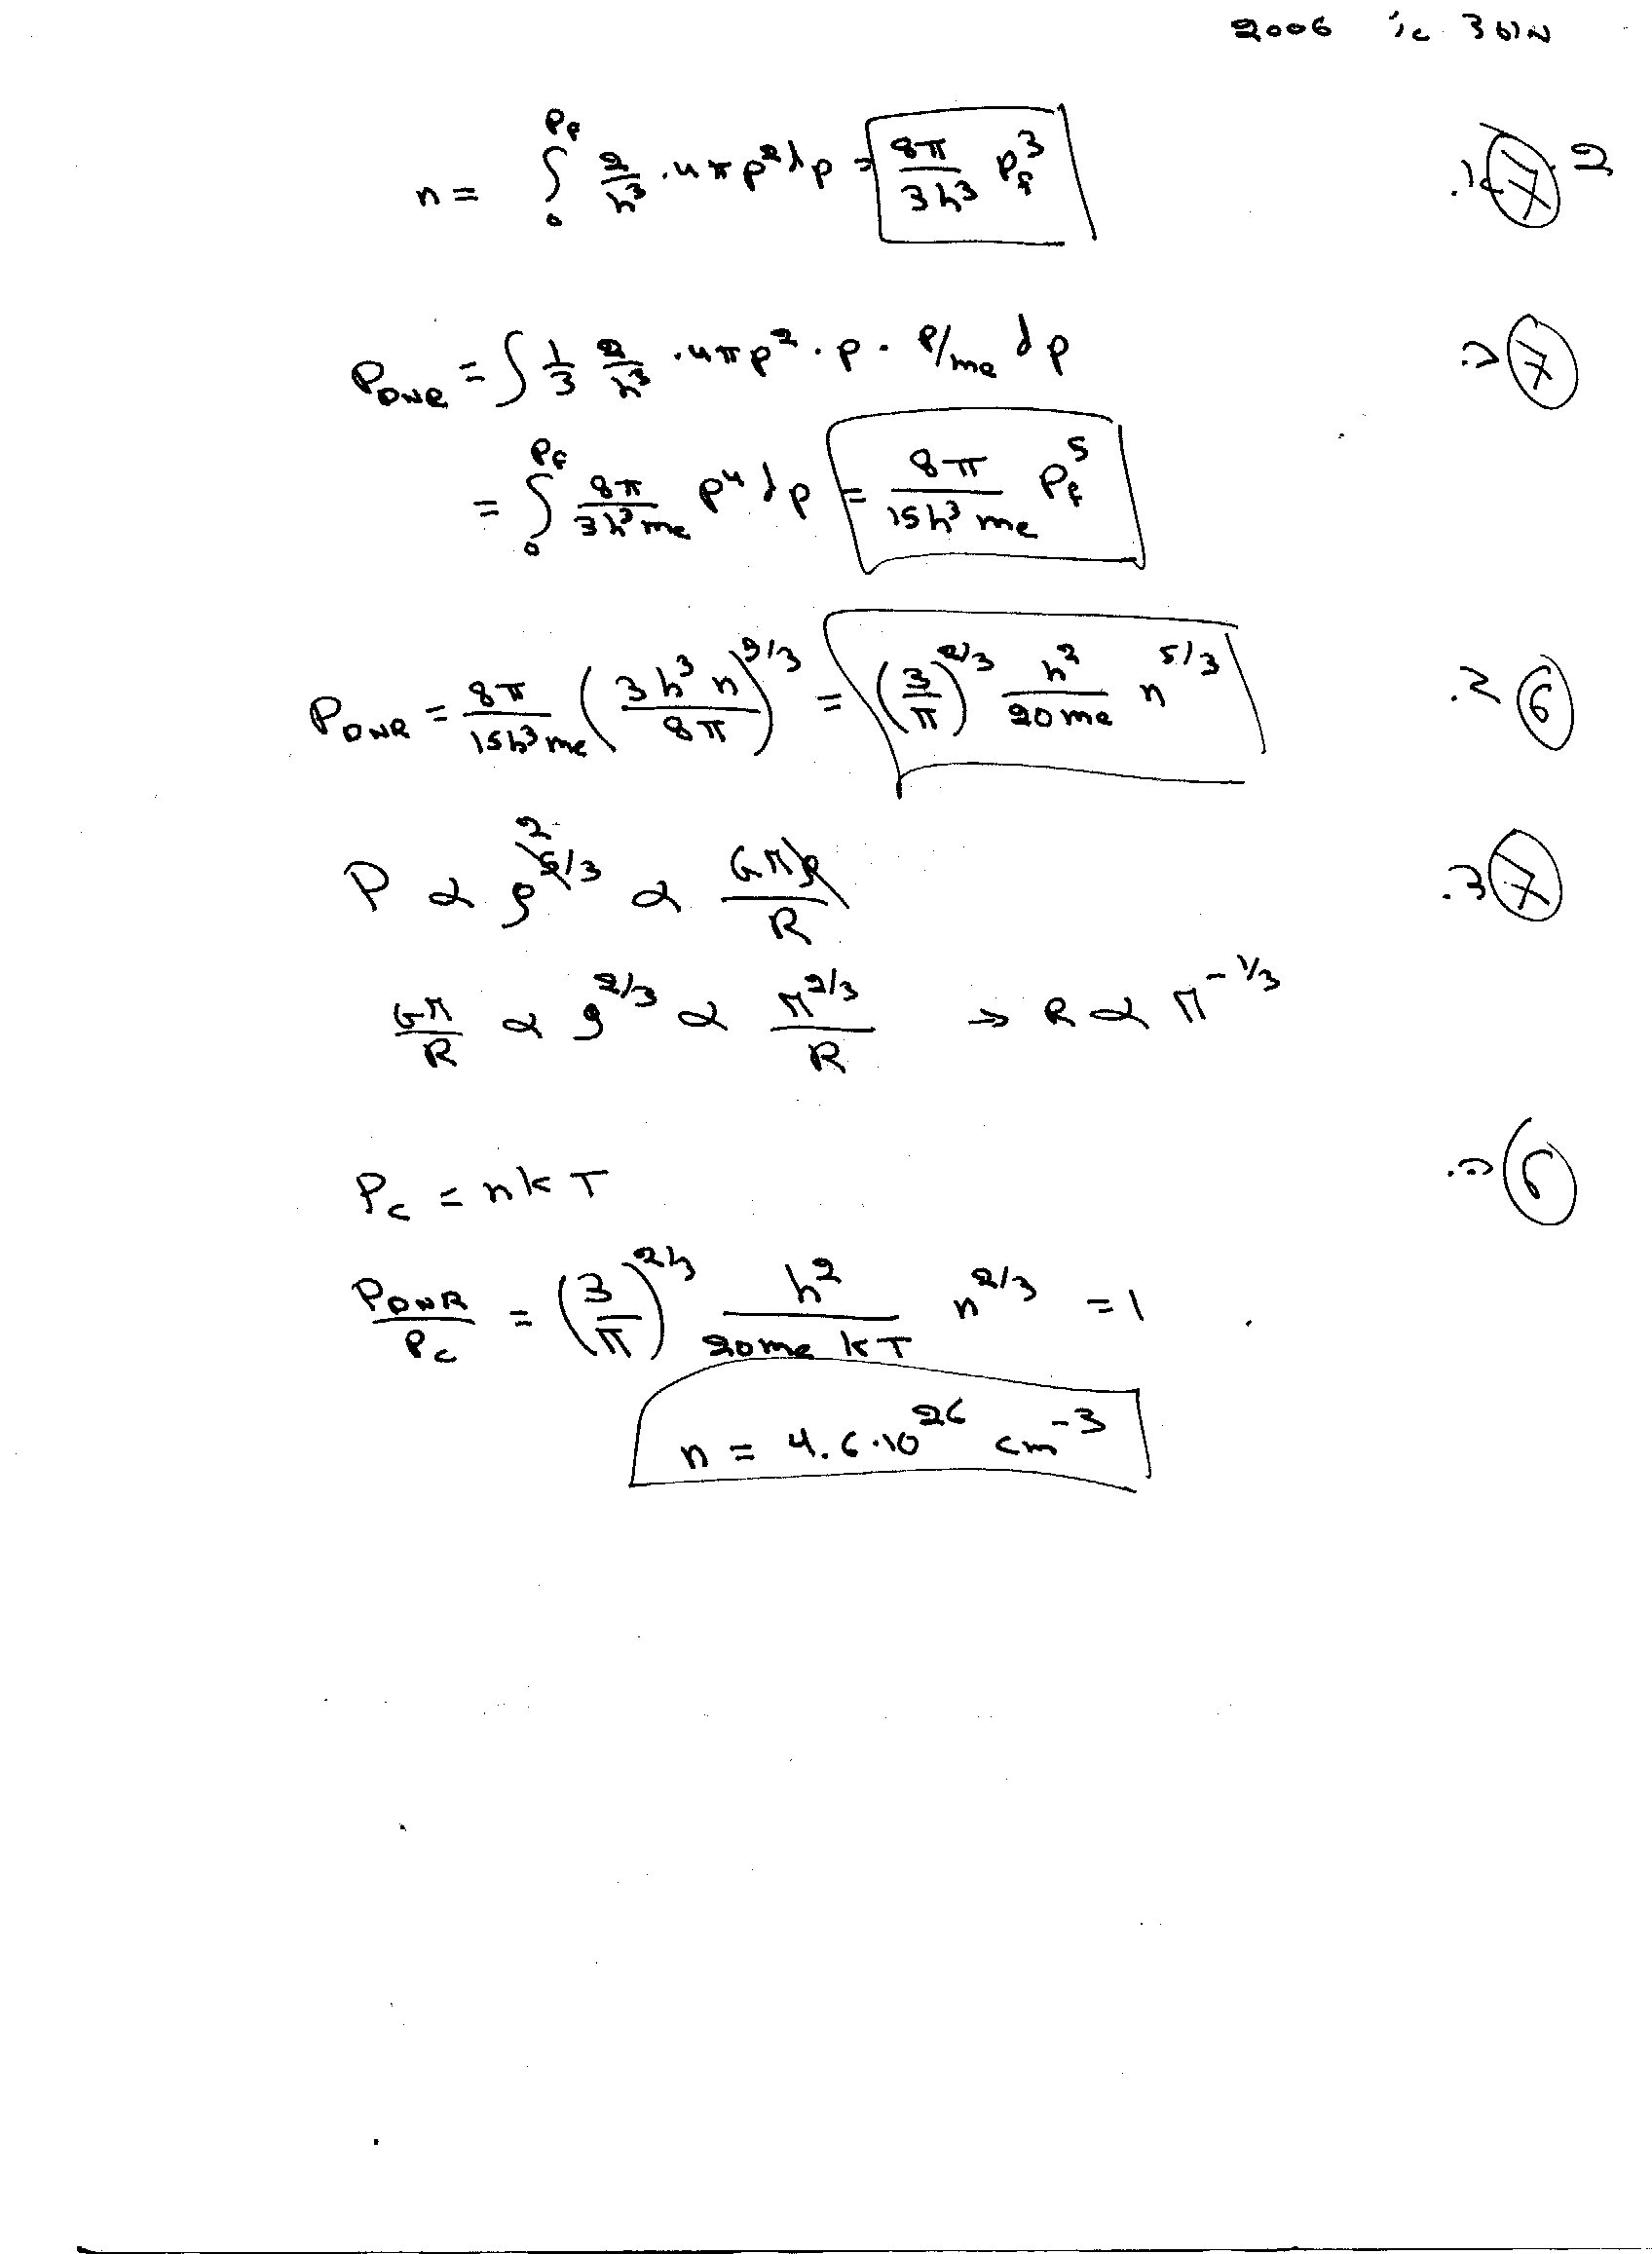 מועד א' 2006
2 (7) א. n = ∫₀^{P_f} 2/h³ · 4πp² dp = 8π/3h³ P_f³
(7) ב. P_{DNR} = ∫ 1/3 2/h³ · 4πp² · p · P/me dp
= ∫₀^{P_f} 8π/3h³me p⁴ dp = 8π/15h³me P_f⁵
(6) ג. P_{DNR} = 8π/15h³me (3h³n/8π)^{5/3} = (3/π)^{2/3} h²/20me n^{5/3}
(7) ד. P ∝ ρ^{5/3} ∝ GMρ/R
GM/R ∝ ρ^{2/3} ∝ M^{2/3}/R → R ∝ M^{-1/3}
(6) ה. P_c = nkT
P_{DNR}/P_c = (3/π)^{2/3} h²/20me kT n^{2/3} = 1
n = 4.6·10²⁶ cm⁻³